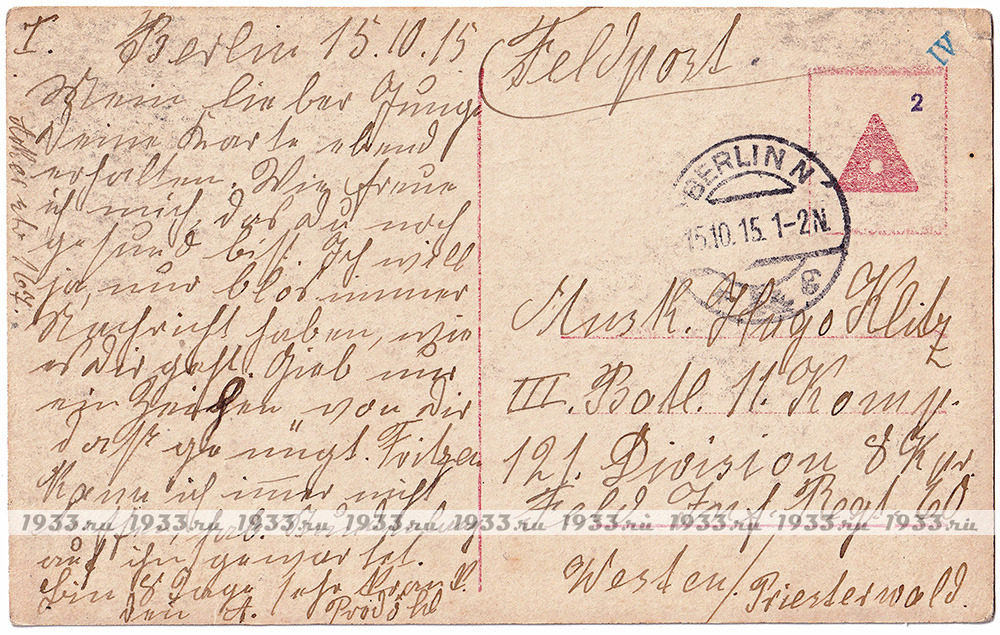 I. Berlin 15.10.15
Mein lieber Junge
Deine Karte ebend
erhalten. Wie freue
ich mich, das du noch
gesund bist. Ich will
ja, nur blos immer
Nachricht haben, wie
es Dir geht. Gieb nur
ein Zeichen von dir
das genügt. Fritzen
Kann ich immer nicht
auf ihn gewartet.
Bin 8 Tage sehr krank.
Dein A.
Feldpost.
IV
2
BERLIN N
15.10.15. 1-2N.
Musk. Hugo Klitz
III. Batl. 11. Komp.
121. Division 8 Kpr.
Feld Inf. Regt. 60
Westen / Priesterwald.
1933.ru 1933.ru 1933.ru 1933.ru 1933.ru 1933.ru 1933.ru 1933.ru 1933.ru